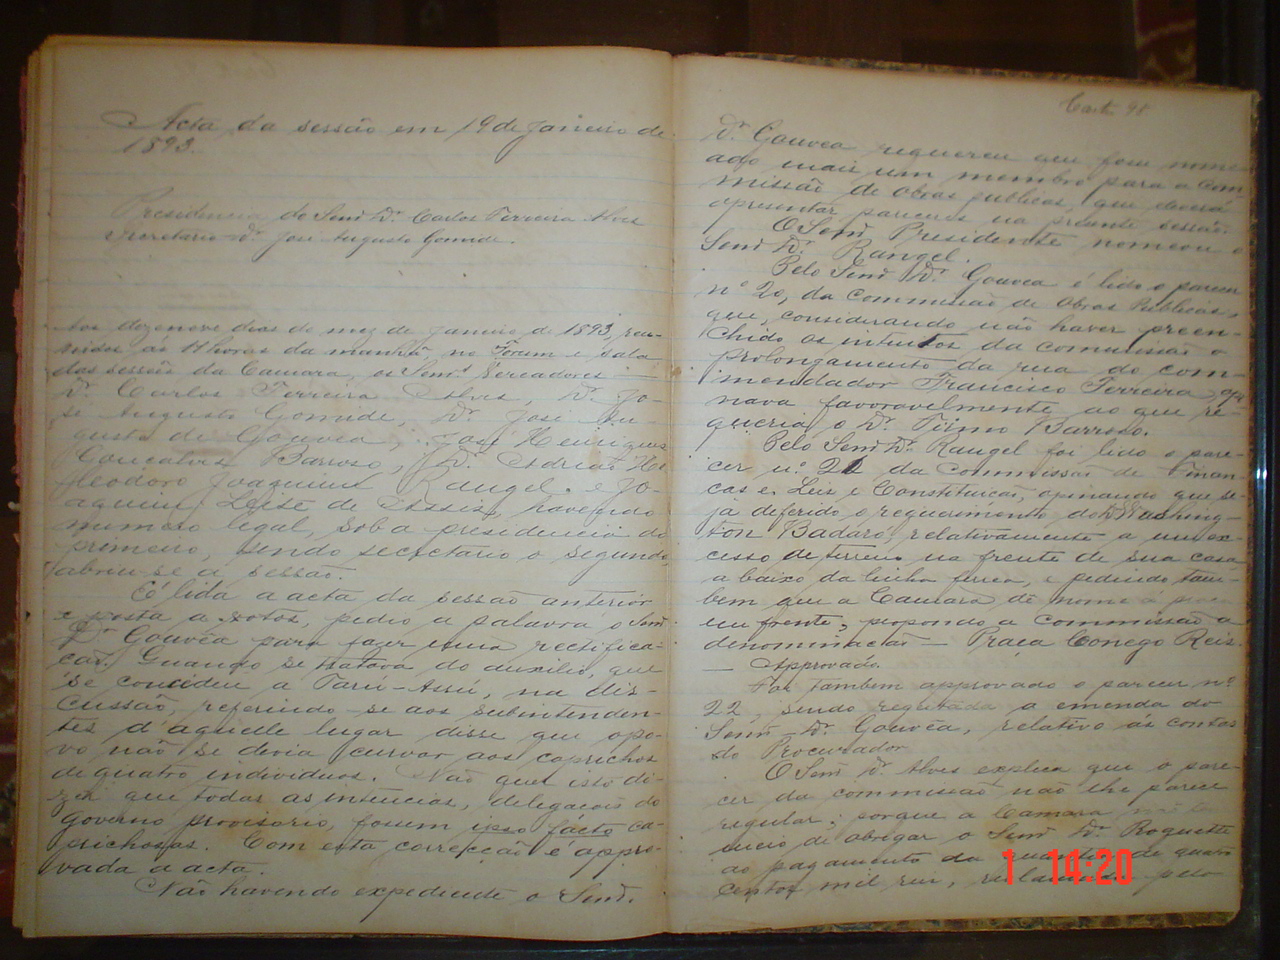 Acta da sessão em 19 de Janeiro de
1893.
Presidencia do Senr. Dr. Carlos Ferreira Alves
Secretario Dr. José Augusto Gomide.
Aos dezenove dias do mez de Janeiro de 1893, reu-
nidos ás 11 horas da manhã, no Forum e sala
das sessão da Camara, os Senrs. Vereadores
Dr. Carlos Ferreira Alves, Dr. Jo-
sé Augusto Gomide, Dr. José Au-
gusto de Gouvêa, José Henriques
Gonçalves Barroso, Dr. Adriano He-
liodoro Joaquim Rangel e Jo-
aquim Leite de Assis, havendo
numero legal, sob a presidencia do
primeiro, sendo secretario o segundo,
abriu-se a sessão.
É lida a acta da sessão anterior
e posta a votos, pedio a palavra o Senr.
Dr. Gouvêa para fazer uma rectifica-
ção. Quando se tratava do auxilio, que
se concedeu a Tarú-Assú, na dis-
cussão, referindo-se aos subintenden-
tes d'aquelle lugar disse que o po-
vo não se devia curvar aos caprichos
de quatro individuos. Não quer isto di-
zer que todas as intencias, delegações do
governo provisorio, fossem ipso facto ca-
prichosas. Com esta correcção é appro-
vada a acta.
Não havendo expediente o Senr.
Dr. Gouvêa requereu que fosse nome-
ado mais um membro para a Com-
missão de Obras publicas, que deverá
apresentar pareceres na presente sessão.
O Senr. Presidente nomeou o
Senr. Dr. Rangel.
Pelo Senr. Dr. Gouvea é lido o parecer
nº 20, da Commissão de Obras Publicas,
que, considerando não haver preen-
chido os intuitos da commissão o
prolongamento da rua do com-
mendador Francisco Ferreira, opi-
nava favoravelmente ao que re-
queria o Dr. Barroso.
Pelo Senr. Dr. Rangel foi lido o pare-
cer nº 21 da Commissão de Finan-
ças e Leis e Constituição, opinando que se-
ja deferido o requerimento do Dr. Washing-
ton Badaró, relativamente a um ex-
cesso de terreno na frente de sua casa
a baixo da linha ferrea, e pedindo tam-
bem que a Camara dê nome á praça
em frente, propondo a commissão a
denominação — Praça Conego Reis.
— Approvado.
Foi tambem approvado o parecer nº
22, sendo regeitada a emenda do
Senr. Dr. Gouvêa, relativo ás contas
do Procurador
O Senr. Dr. Alves explica que o pare-
cer da commissão não lhe parece
regular; porque a Camara
de obrigar o Senr. Dr. Roquette
ao pagamento da quantia de quatro
centos mil reis, pelo
1 14:20